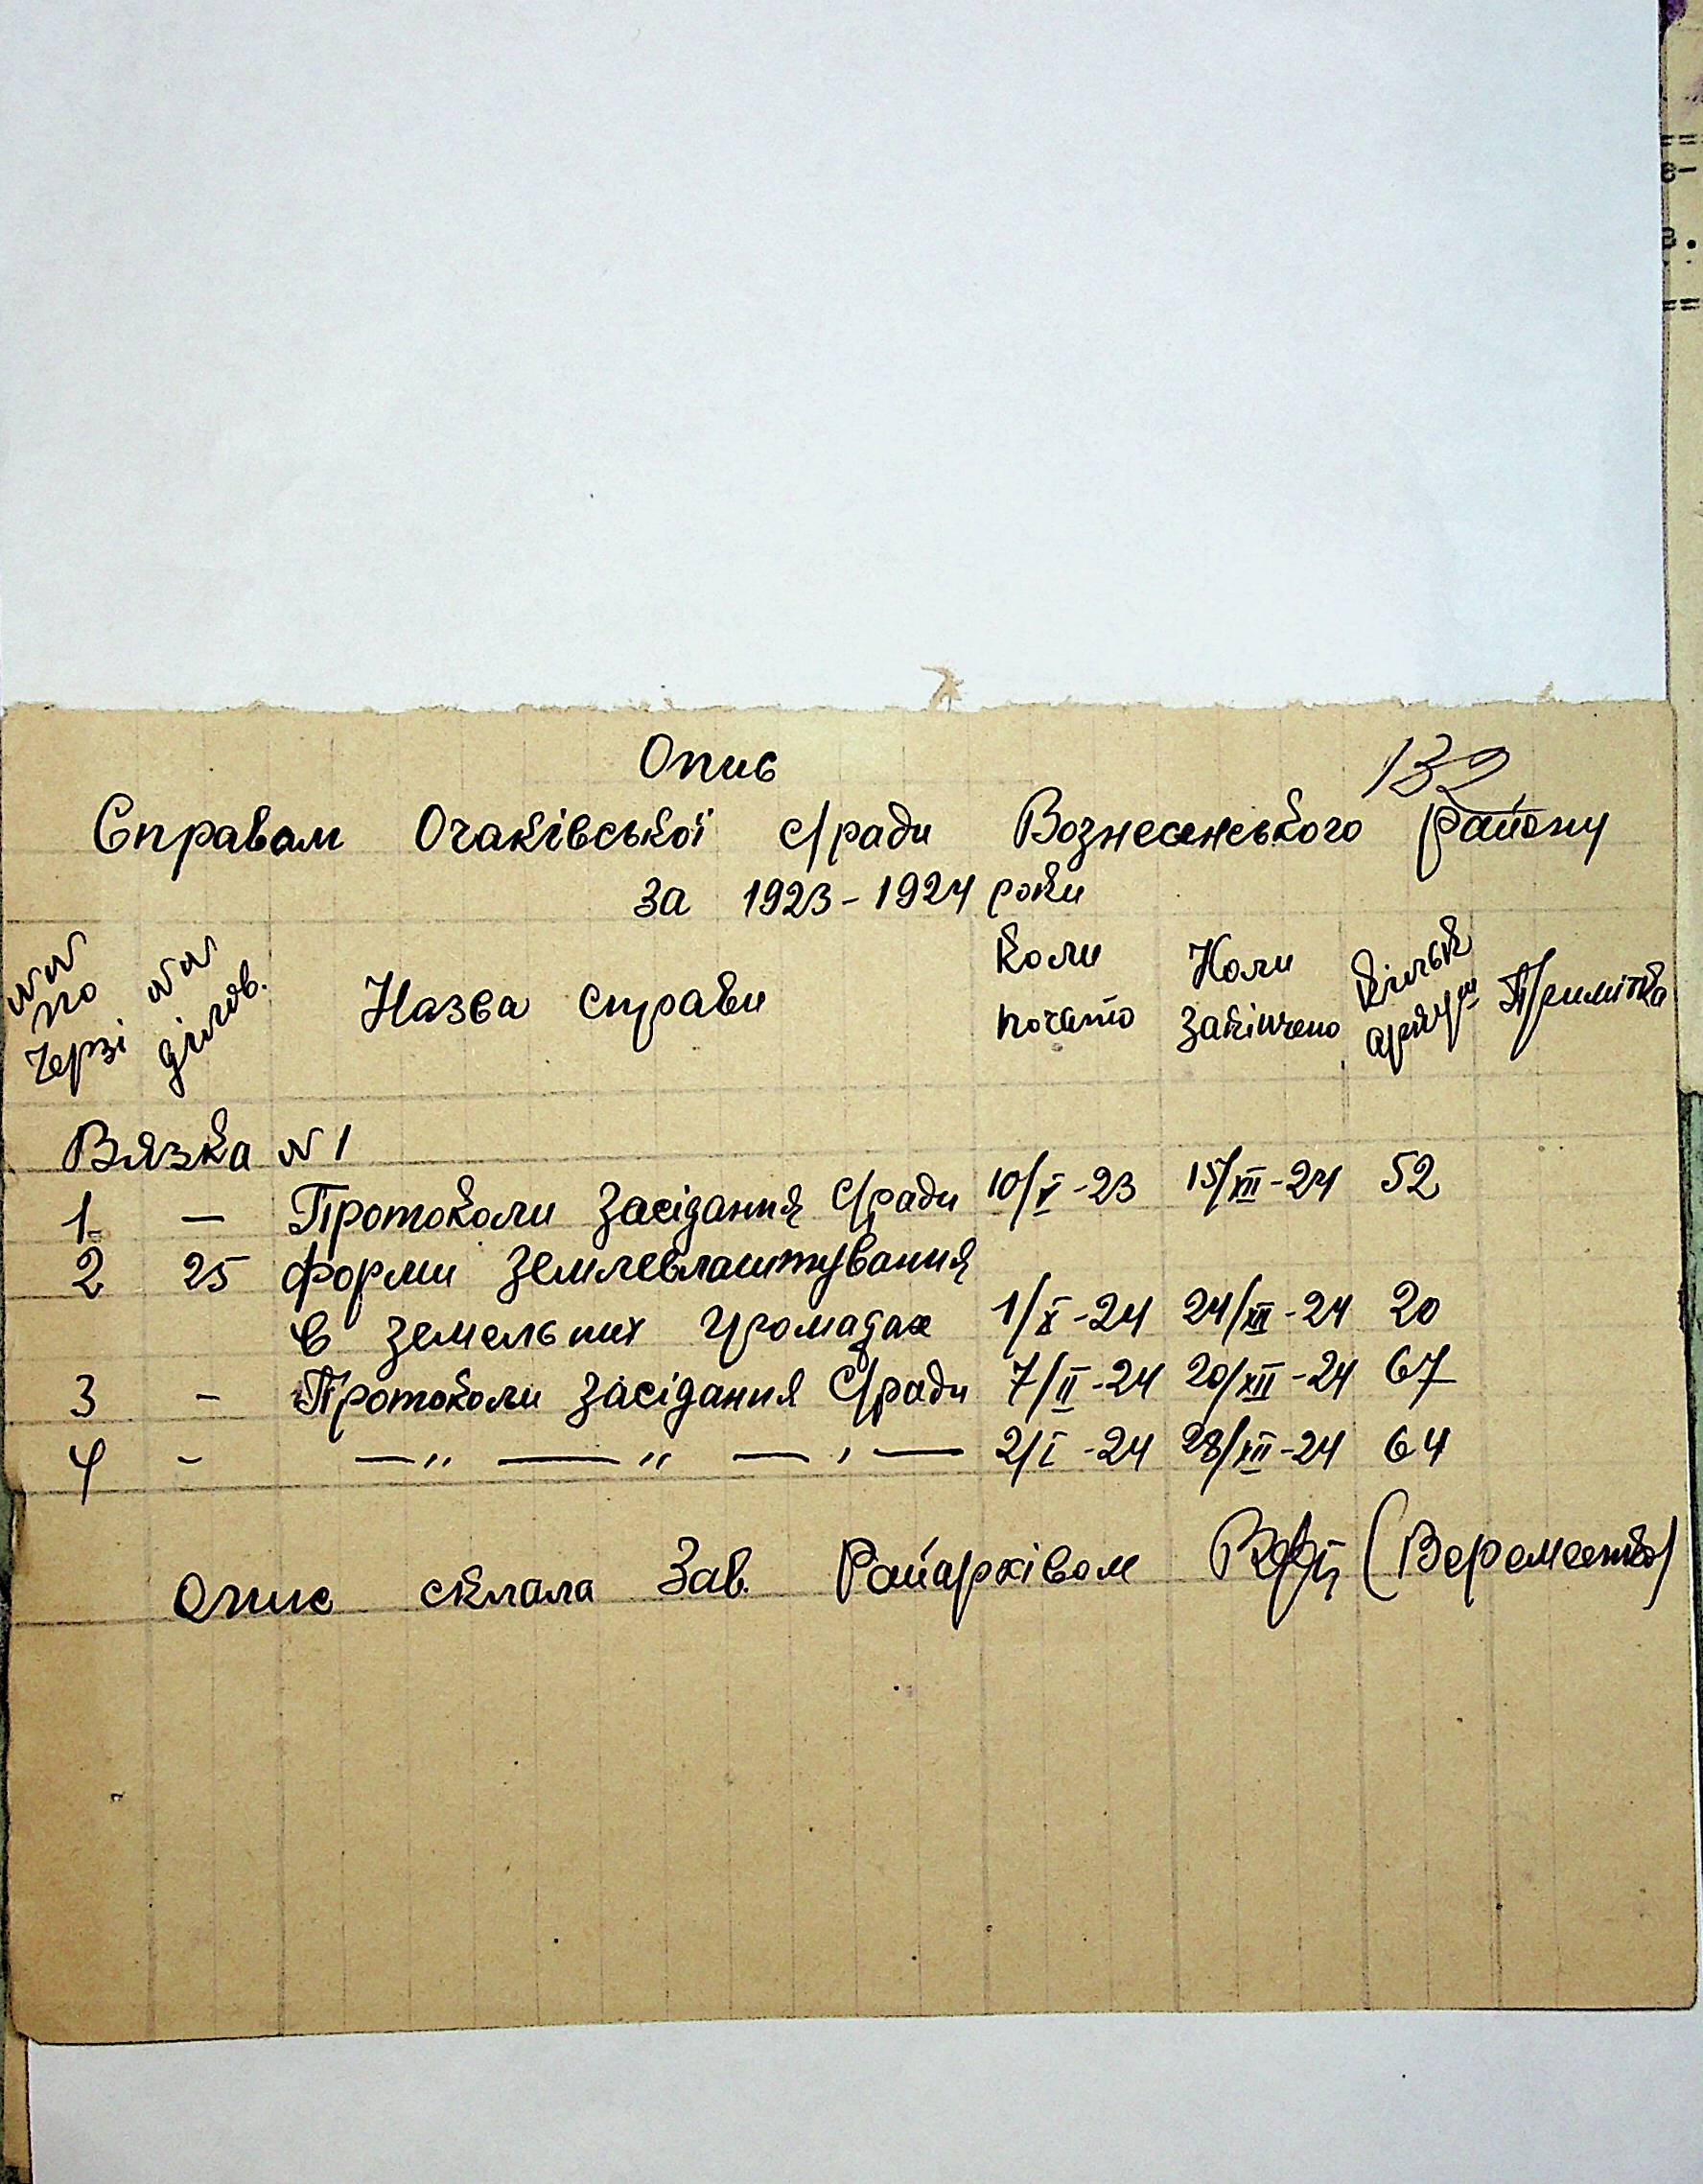 Опис
132
Справам Очаківської с/ради Вознесенського району
за 1923-1924 роки
№№ по черзі №№ділов. Назва справи Коли почато Коли закінчено Кільк аркуш Примітка
Вязка №1
1 — Протоколи засідання с/ради 10/V-23 15/XII-24 52
2 25 Форми землевлаштування
в земельних громадах 1/X-24 24/XII-24 20
3 - Протоколи засідання с/ради 7/II-24 20/XII-24 67
4 - —"—"—,— 2/I-24 28/XII-24 64
Опис склала Зав. Райархівом